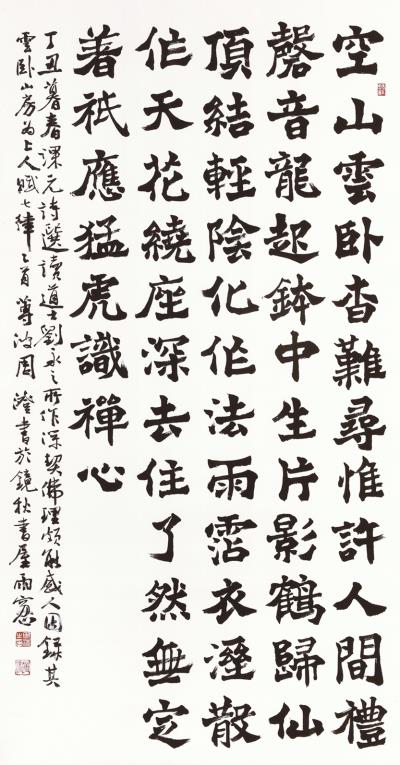 空山雲卧杳難尋惟許人間禮
磬音龍起鉢中生片影鶴歸仙
頂結輕陰化作法雨霑衣溼散
作天花繞座深去住了然無定
著祇應猛虎識禪心
丁丑暮春課元詩選讀道士劉永之所作深契佛理頗能感人因錄其
雲卧山房為上人賦七律乙首蓴波周澄書於鏡秋書屋雨窗